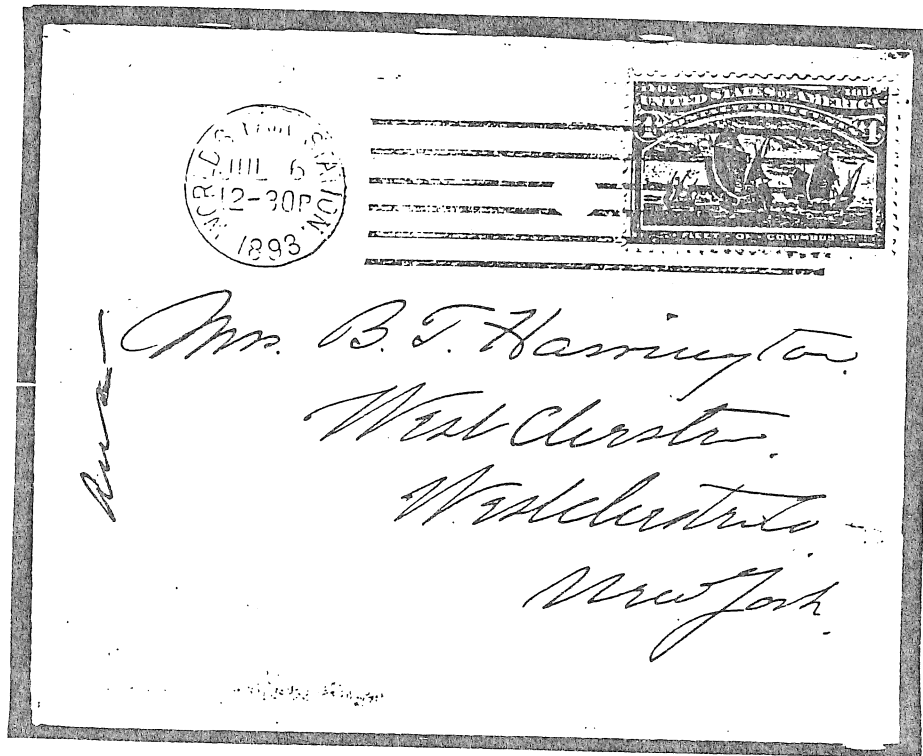 WORLD'S FAIR STATION.
JUL 6
12-30P
1893
UNITED STATES OF AMERICA
4 4
FLEET OF COLUMBUS
Mrs. B. T. Harrington.
West Chester.
Westchester Co
New York.